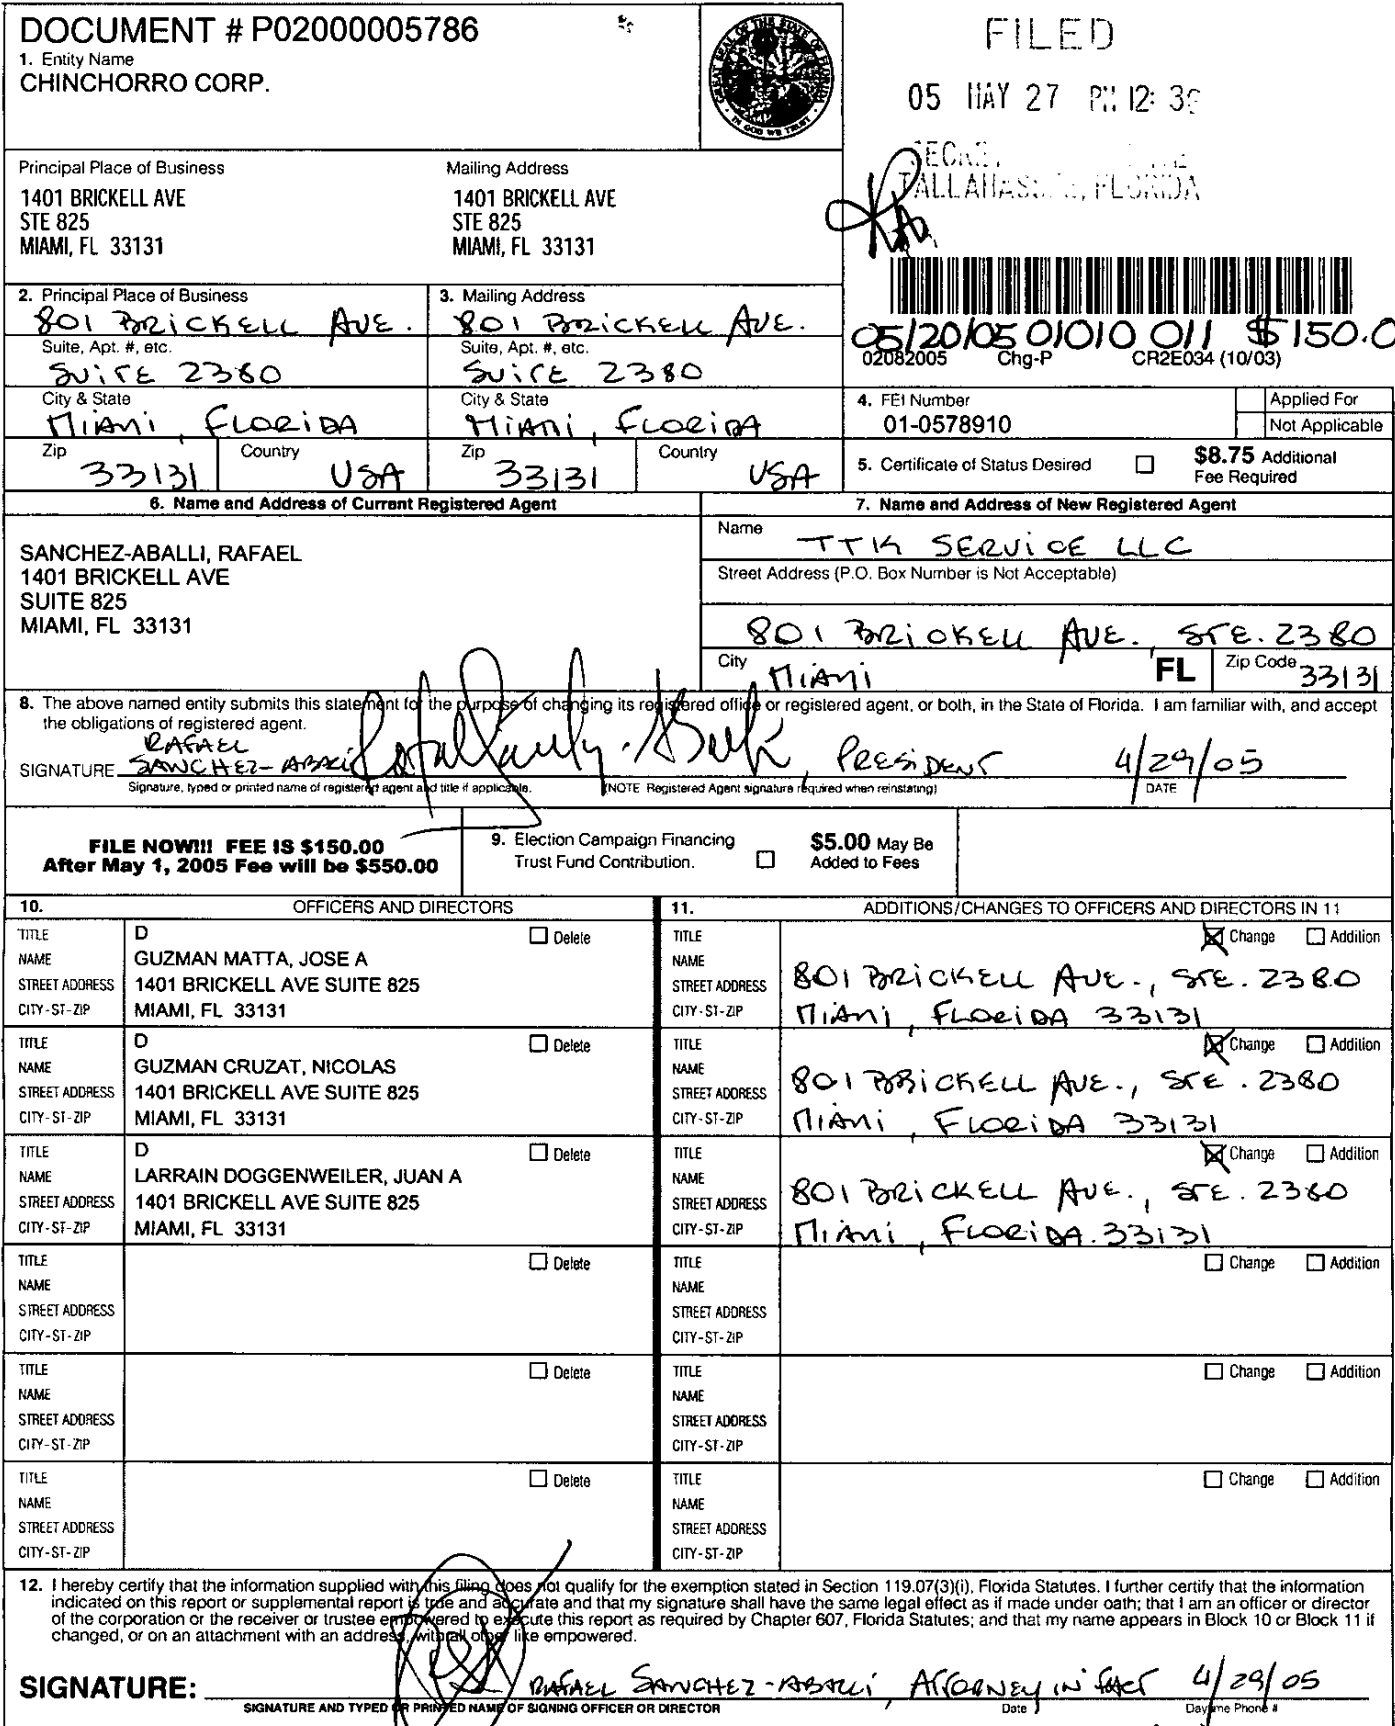 DOCUMENT # P02000005786
1. Entity Name
CHINCHORRO CORP.
GREAT SEAL OF THE STATE OF FLORIDA
IN GOD WE TRUST
FILED
05 MAY 27 PM 12: 36
TALLAHASSEE, FLORIDA
Principal Place of Business
1401 BRICKELL AVE
STE 825
MIAMI, FL 33131
Mailing Address
1401 BRICKELL AVE
STE 825
MIAMI, FL 33131
2. Principal Place of Business
801 BRICKELL AVE.
Suite, Apt. #, etc.
SUITE 2380
City & State
MIAMI, FLORIDA
Zip 33131 Country USA
3. Mailing Address
801 BRICKELL AVE.
Suite, Apt. #, etc.
SUITE 2380
City & State
MIAMI, FLORIDA
Zip 33131 Country USA
05/20/05 01010 011 $150.0
02082005 Chg-P CR2E034 (10/03)
4. FEI Number
01-0578910
Applied For
Not Applicable
5. Certificate of Status Desired
$8.75 Additional
Fee Required
6. Name and Address of Current Registered Agent
SANCHEZ-ABALLI, RAFAEL
1401 BRICKELL AVE
SUITE 825
MIAMI, FL 33131
7. Name and Address of New Registered Agent
Name TTK SERVICE LLC
Street Address (P.O. Box Number is Not Acceptable)
801 BRICKELL AVE., STE. 2380
City MIAMI FL Zip Code 33131
8. The above named entity submits this statement for the purpose of changing its registered office or registered agent, or both, in the State of Florida. I am familiar with, and accept
the obligations of registered agent.
RAFAEL
SIGNATURE SANCHEZ-ABALLI, PRESIDENT 4/29/05
Signature, typed or printed name of registered agent and title if applicable. (NOTE Registered Agent signature required when reinstating) DATE
FILE NOW!!! FEE IS $150.00
After May 1, 2005 Fee will be $550.00
9. Election Campaign Financing
Trust Fund Contribution.
$5.00 May Be
Added to Fees
10. OFFICERS AND DIRECTORS
11. ADDITIONS/CHANGES TO OFFICERS AND DIRECTORS IN 11
TITLE D Delete
NAME GUZMAN MATTA, JOSE A
STREET ADDRESS 1401 BRICKELL AVE SUITE 825
CITY-ST-ZIP MIAMI, FL 33131
TITLE Change Addition
NAME
STREET ADDRESS 801 BRICKELL AVE., STE. 2380
CITY-ST-ZIP MIAMI, FLORIDA 33131
TITLE D Delete
NAME GUZMAN CRUZAT, NICOLAS
STREET ADDRESS 1401 BRICKELL AVE SUITE 825
CITY-ST-ZIP MIAMI, FL 33131
TITLE Change Addition
NAME
STREET ADDRESS 801 BRICKELL AVE., STE. 2380
CITY-ST-ZIP MIAMI, FLORIDA 33131
TITLE D Delete
NAME LARRAIN DOGGENWEILER, JUAN A
STREET ADDRESS 1401 BRICKELL AVE SUITE 825
CITY-ST-ZIP MIAMI, FL 33131
TITLE Change Addition
NAME
STREET ADDRESS 801 BRICKELL AVE., STE. 2380
CITY-ST-ZIP MIAMI, FLORIDA. 33131
TITLE Delete
NAME
STREET ADDRESS
CITY-ST-ZIP
TITLE Change Addition
NAME
STREET ADDRESS
CITY-ST-ZIP
TITLE Delete
NAME
STREET ADDRESS
CITY-ST-ZIP
TITLE Change Addition
NAME
STREET ADDRESS
CITY-ST-ZIP
TITLE Delete
NAME
STREET ADDRESS
CITY-ST-ZIP
TITLE Change Addition
NAME
STREET ADDRESS
CITY-ST-ZIP
12. I hereby certify that the information supplied with this filing does not qualify for the exemption stated in Section 119.07(3)(i), Florida Statutes. I further certify that the information
indicated on this report or supplemental report is true and accurate and that my signature shall have the same legal effect as if made under oath; that I am an officer or director
of the corporation or the receiver or trustee empowered to execute this report as required by Chapter 607, Florida Statutes; and that my name appears in Block 10 or Block 11 if
changed, or on an attachment with an address, with all other like empowered.
SIGNATURE: RAFAEL SANCHEZ-ABALLI, ATTORNEY IN FACT 4/29/05
SIGNATURE AND TYPED OR PRINTED NAME OF SIGNING OFFICER OR DIRECTOR Date Daytime Phone #